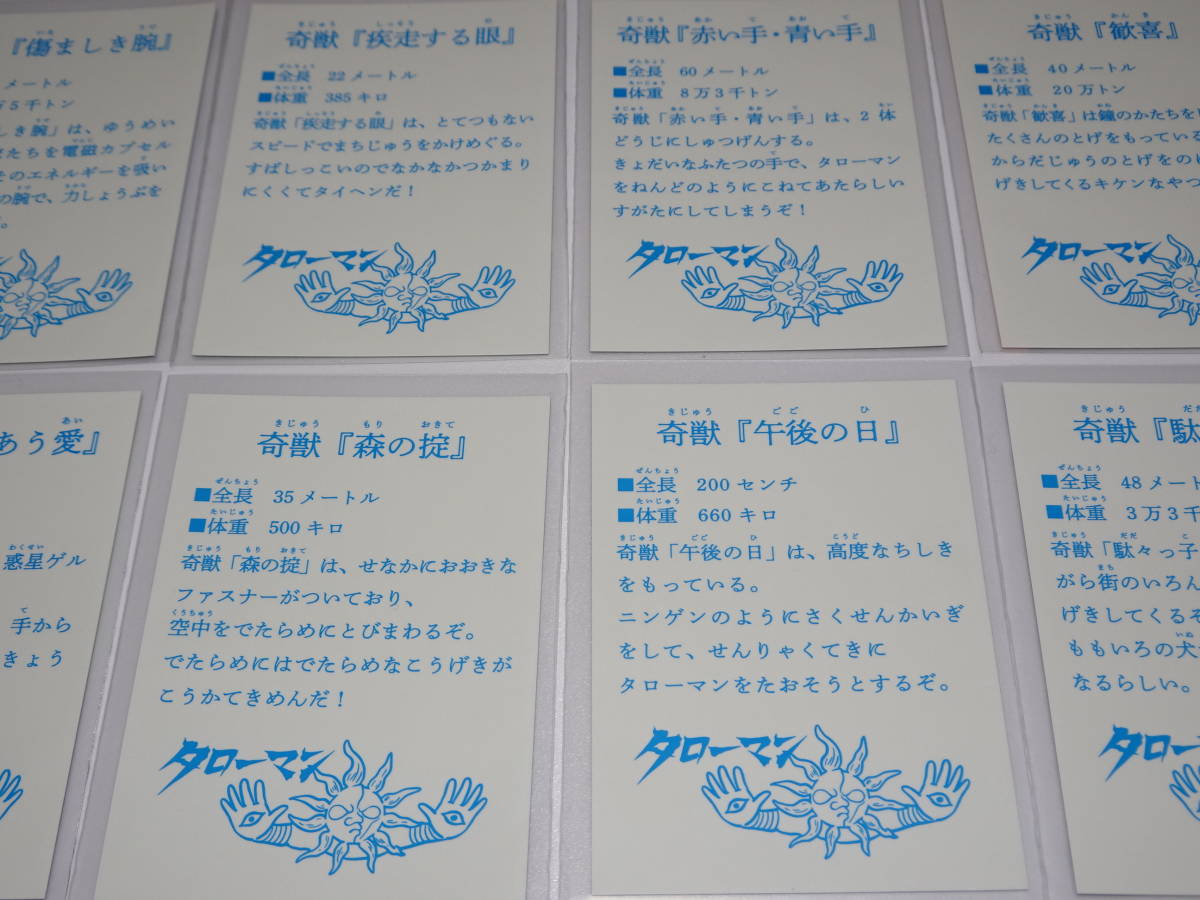 『傷ましき腕』
メートル
万5千トン
しき腕」は、ゆうめい
たちを電磁カプセル
そのエネルギーを吸い
の腕で、力しょうぶを
。
奇獣『疾走する眼』
■全長 22メートル
■体重 385キロ
奇獣「疾走する眼」は、とてつもない
スピードでまちじゅうをかけめぐる。
すばしっこいのでなかなかつかまり
にくくてタイヘンだ！
タローマン
奇獣『赤い手・青い手』
■全長 60メートル
■体重 8万3千トン
奇獣「赤い手・青い手」は、2体
どうじにしゅつげんする。
きょだいなふたつの手で、タローマン
をねんどのようにこねてあたらしい
すがたにしてしまうぞ！
タローマン
奇獣『歓喜』
■全長 40メートル
■体重 20万トン
奇獣「歓喜」は鐘のかたちを
たくさんのとげをもってい
からだじゅうのとげをの
げきしてくるキケンなやつ
タローマン
あう愛』
惑星ゲル
手から
きょう
奇獣『森の掟』
■全長 35メートル
■体重 500キロ
奇獣「森の掟」は、せなかにおおきな
ファスナーがついており、
空中をでたらめにとびまわるぞ。
でたらめにはでたらめなこうげきが
こうかてきめんだ！
タローマン
奇獣『午後の日』
■全長 200センチ
■体重 660キロ
奇獣「午後の日」は、高度なちしき
をもっている。
ニンゲンのようにさくせんかいぎ
をして、せんりゃくてきに
タローマンをたおそうとするぞ。
タローマン
奇獣『駄
■全長 48メート
■体重 3万3千
奇獣「駄々っ子
がら街のいろん
げきしてくるぞ
ももいろの犬
なるらしい。
タロー